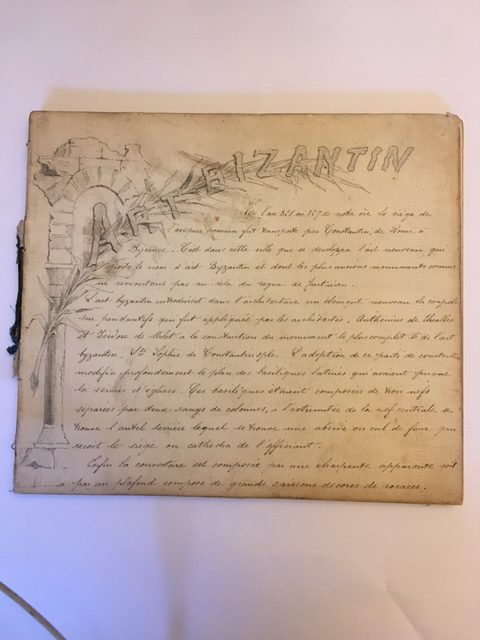 ART BIZANTIN
Vers l'an 328 ou 329 de notre ère le siège de
l'empire romain fut transporté par Constantin de Rome à
Byzance. C'est dans cette ville que se développa l'art nouveau qui
porte le nom d'art Byzantin et dont les plus anciens monuments connus
ne remontent pas au delà du règne de Justinien.
L'art byzantin introduisit dans l'architecture un élément nouveau la coupole
sur pendentifs qui fut appliquée par les architectes, Anthémius de Thralles
et Isidore de Milet à la construction du monument le plus complet de l'art
byzantin, Ste Sophie de Constantinople. L'adoption de ce parti de construction
modifia profondément le plan des basiliques latines qui avaient jusque
là servi d'églises. Ces basiliques étaient composées de trois nefs
séparées par deux rangs de colonnes, à l'extrémité de la nef centrale se
trouve l'autel derrière lequel se trouve une abside ou cul de four qui
reçoit le siège ou cathedra de l'officiant.
Enfin la couverture est composée par une charpente apparente soit
par un plafond composé de grands caissons décorés de rosaces.